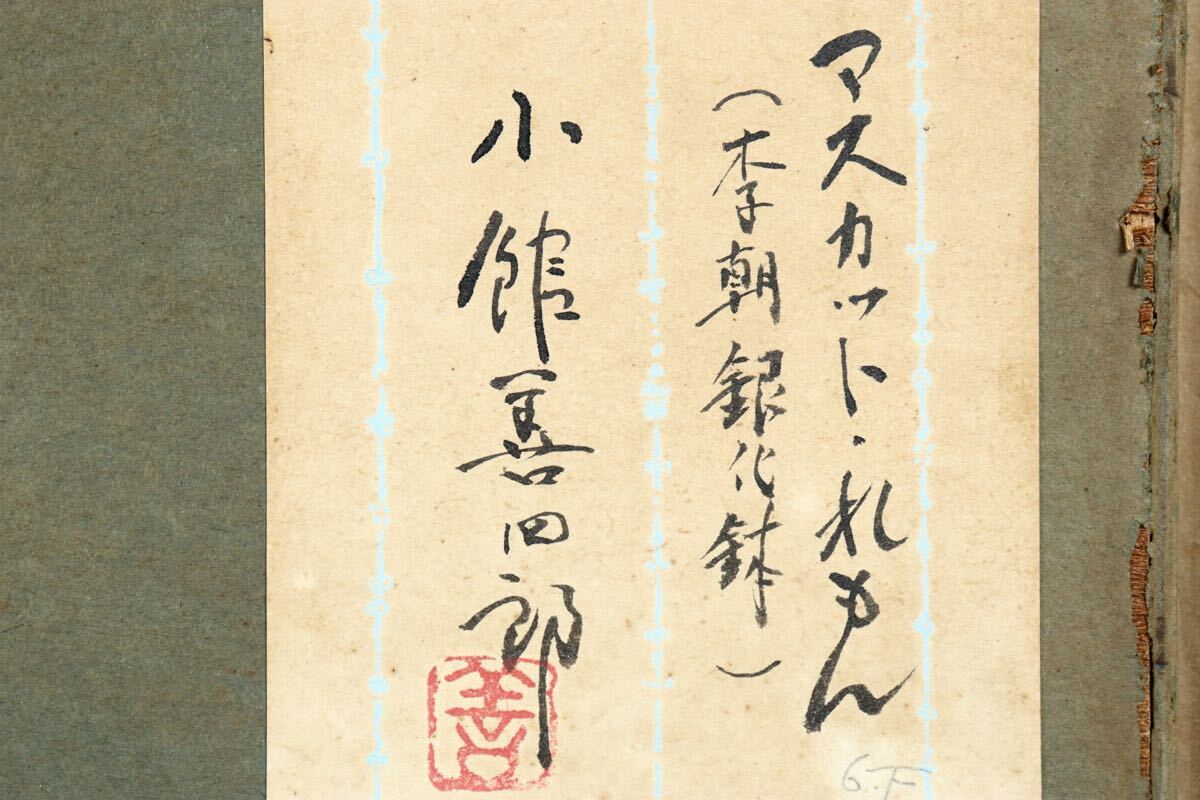 マスカット・れもん
(李朝銀化鉢)
小館善四郎
善
6.F